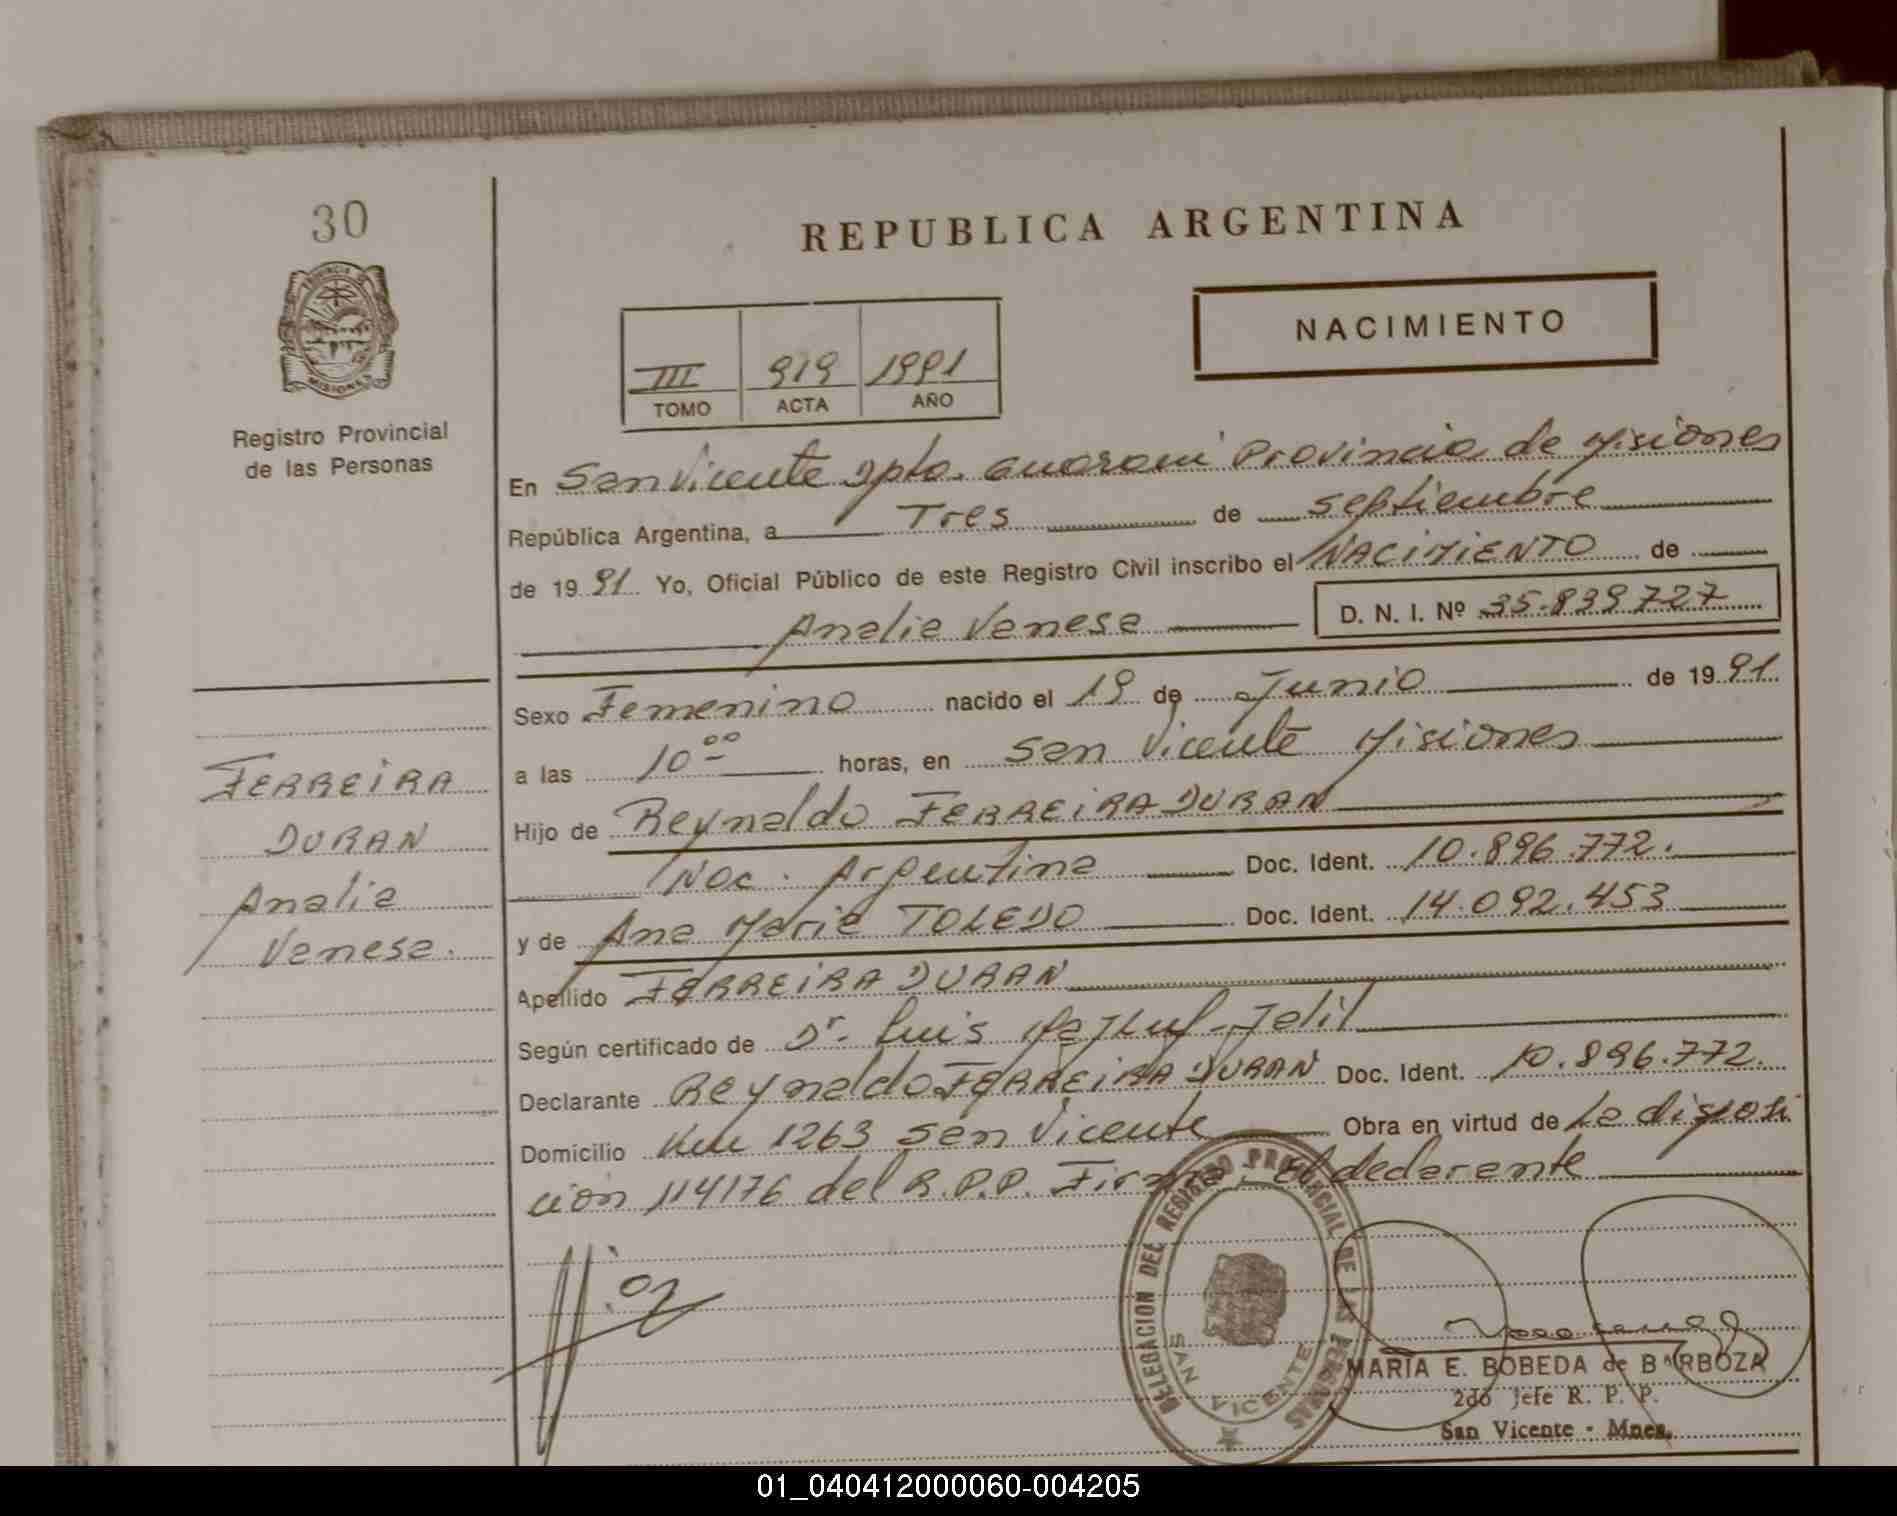 30
PROVINCIA DE
MISIONES
Registro Provincial
de las Personas
REPUBLICA ARGENTINA
III 919 1991
TOMO ACTA AÑO
NACIMIENTO
En San Vicente Dpto. Guarani Provincia de Misiones
República Argentina, a Tres de septiembre
de 19 91. Yo, Oficial Público de este Registro Civil inscribo el NACIMIENTO de
Analia Vanesa D. N. I. Nº 35.839727
Sexo Femenino nacido el 19 de Junio de 19 91.
a las 10 00 horas, en San Vicente Misiones
Hijo de Reynaldo FERREIRA DURAN
Nac. Argentina Doc. Ident. 10.896.772.
y de Ana Maria TOLEDO Doc. Ident. 14.092.453
Apellido FERREIRA DURAN
Según certificado de Dr. Luis Jalil
Declarante Reynaldo FERREIRA DURAN Doc. Ident. 10.896.772.
Domicilio Km 1263 San Vicente Obra en virtud de La disposi
cion 114176 del R.P.P. Firma: el declarante
FERREIRA
DURAN
Analia
Vanesa.
DELEGACION DEL REGISTRO PROVINCIAL DE LAS PERSONAS
SAN VICENTE
MARIA E. BOBEDA de BARBOZA
2do Jefe R. P. P.
San Vicente - Mnes.
01_040412000060-004205